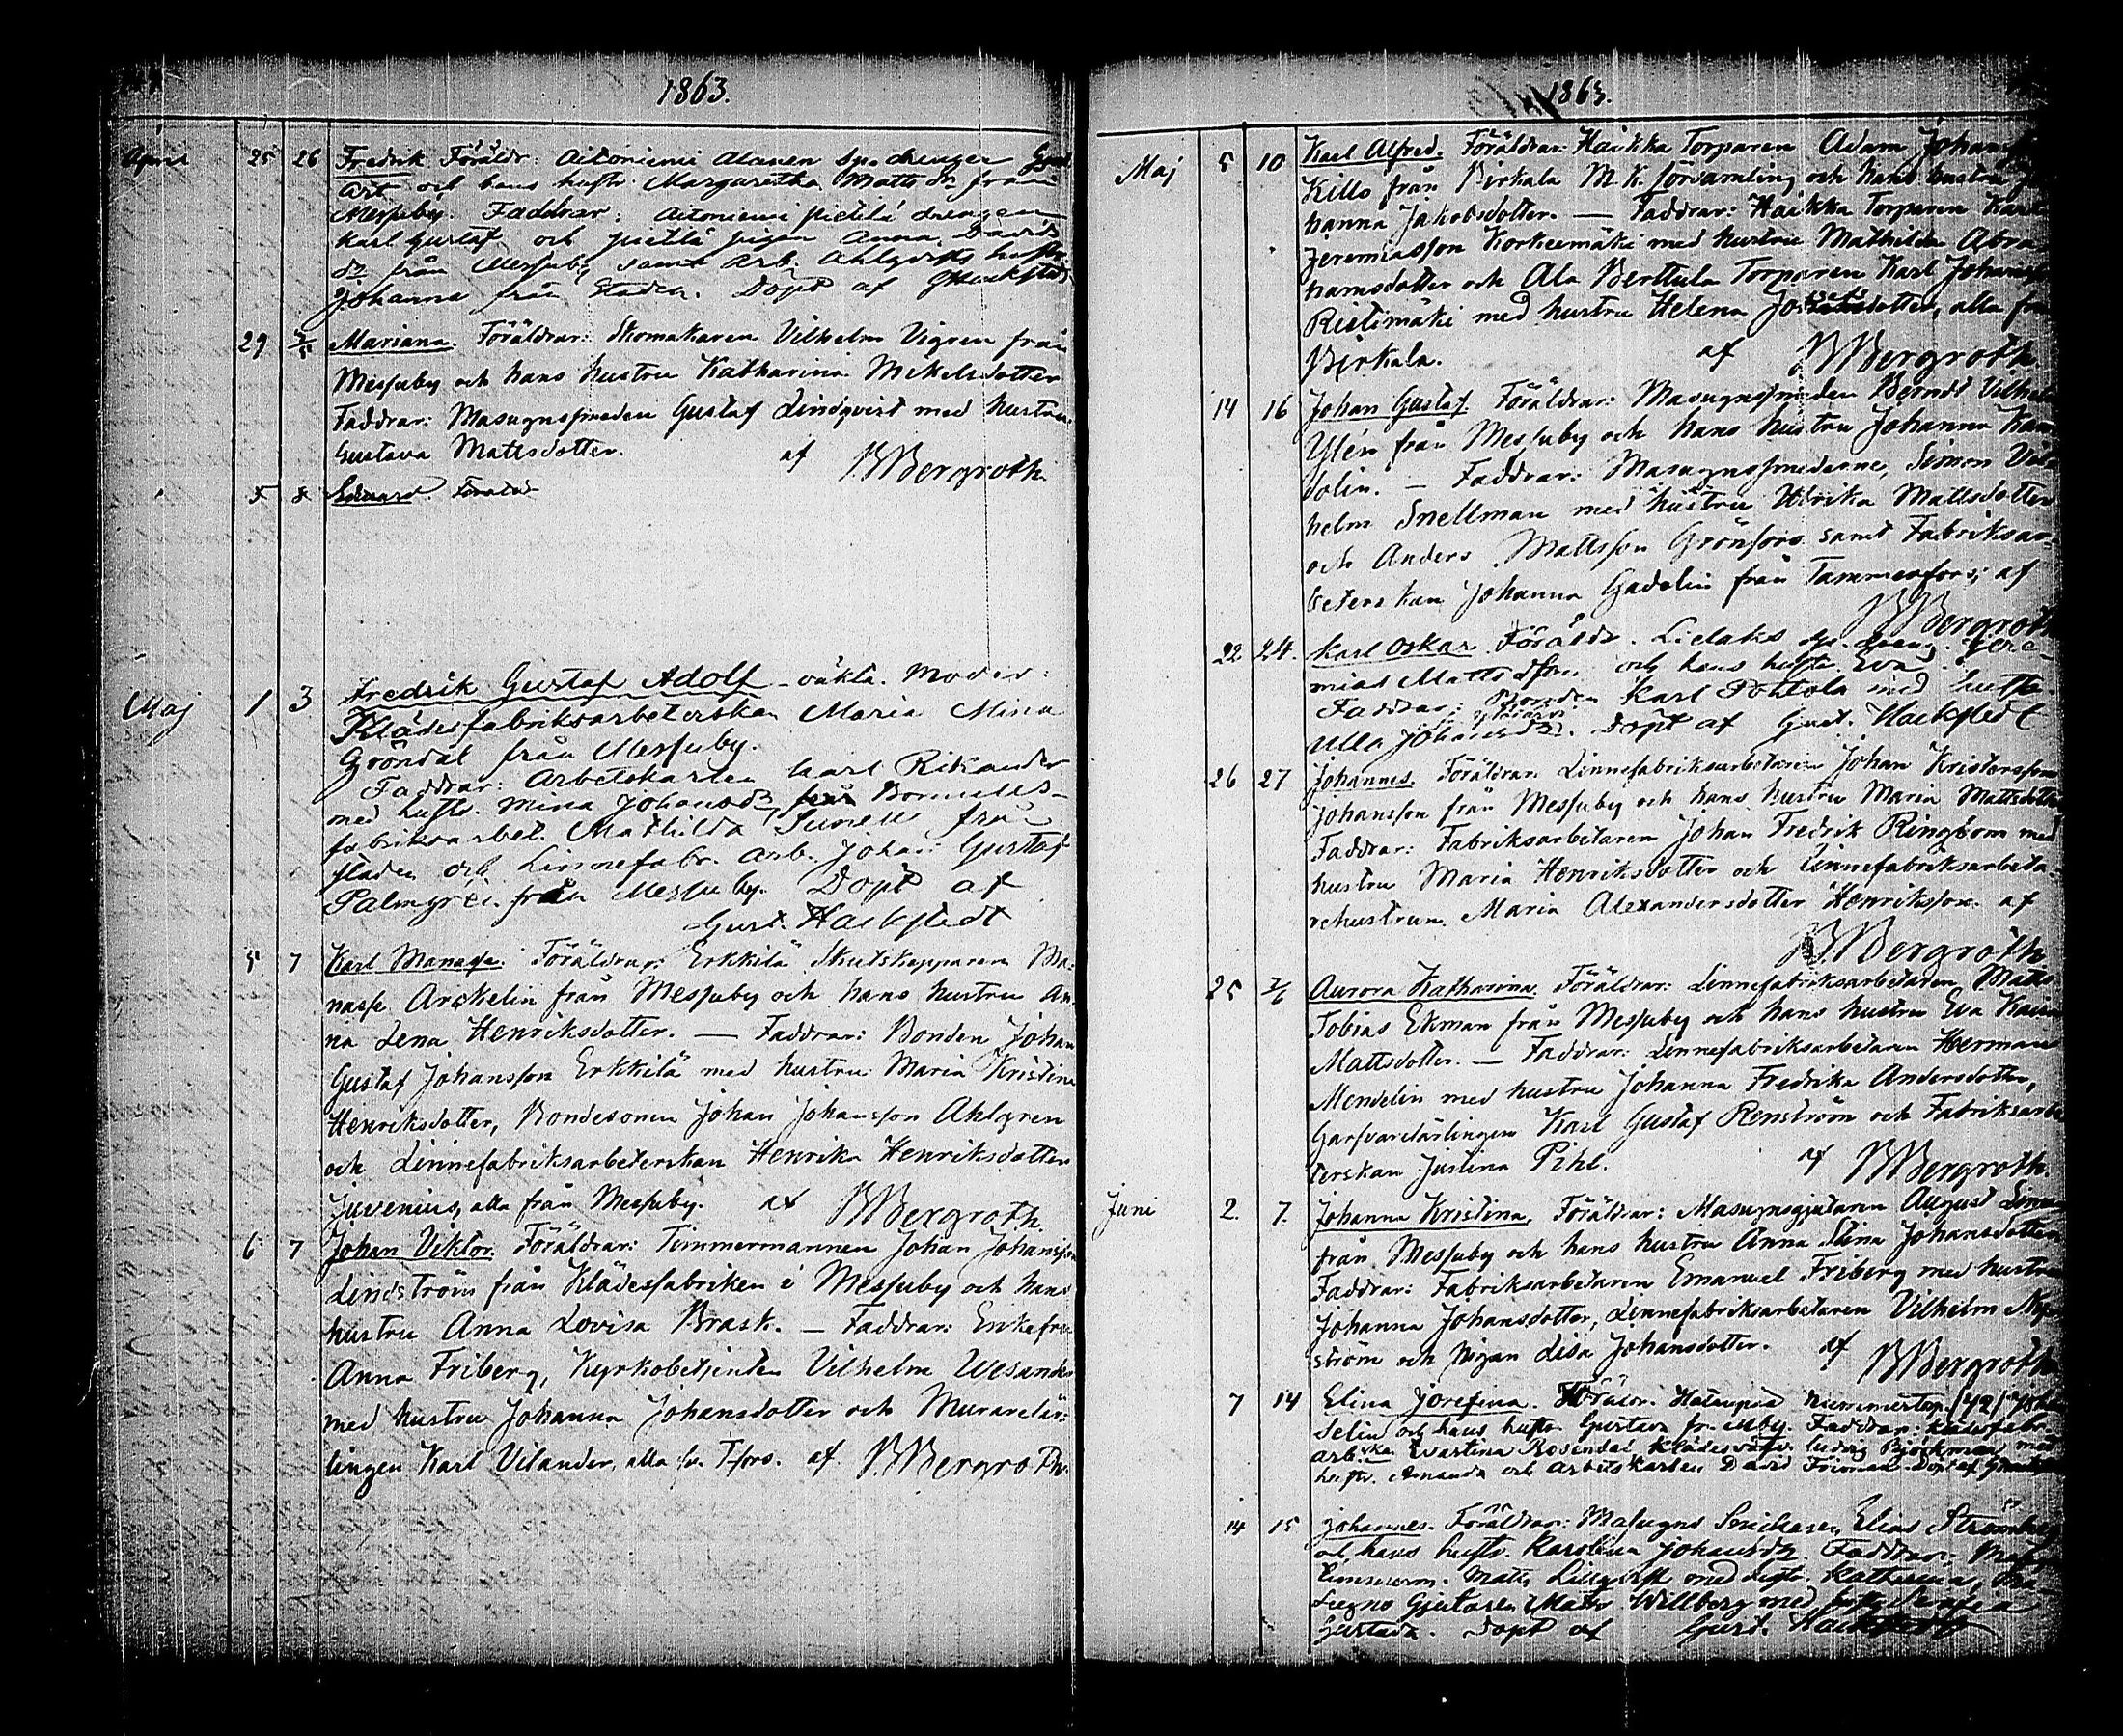 1863.
April 25 26 Fredrik Föräldr: Aitoniemi Alanen Sp. drengen
och hans hustr. Margaretha Matts dr från
Messuby. Faddrar: Aitoniemi Pietilä drengen
Karl Gustaf och Pietilä pigan Anna Davids
dr från Messuby samt Arb. Ahlqvists hustr.
Johanna från Staden. Döpt af GHackstedt
29 3/5 Mariana. Föräldrar: Skomakaren Vilhelm Vigren från
Messuby och hans hustru Katharina Mikelsdotter
Faddrar: Masugnssmeden Gustaf Lindqvist med hustru
Gustava Mattsdotter. af BBergroth.
5 8 Eduard Föräld
Maj 1 3 Fredrik Gustaf Adolf oäkta. Moder:
Klädesfabriksarbeterskan Maria Mina
Gröndal från Messuby.
Faddrar: Arbetskarlen Karl Rikander
med hustr. Mina Johansdr, från Bomulls-
fabriksarbet. Mathilda Sunell från
staden och Linnefabr. Arb. Johan Gustaf
Palmgrén från Messuby. Döpt af
Gust. Hackstedt
5 7 Karl Manasse. Föräldrar: Erkkilä Skutskepparen Ma-
nasse Arckelin från Messuby och hans hustru An-
na Lena Henriksdotter. — Faddrar: Bonden Johan
Gustaf Johansson Erkkilä med hustru Maria Kristina
Henriksdotter, Bondesonen Johan Johansson Ahlgren
och Linnefabriksarbeterskan Henrika Henriksdotter
Juvenius, alla från Messuby. af BBergroth.
6 7 Johan Viktor. Föräldrar: Timmermannen Johan Johansson
Lindström från Klädesfabriken i Messuby och hans
hustru Anna Lovisa Brask. — Faddrar: Enkefru
Anna Friberg, Kyrkobetjenten Vilhelm Vesander
med hustru Johanna Johansdotter och Murarelär-
lingen Karl Vilander, alla fr. T:fors. af BBergroth.
1863.
Maj 5 10 Karl Alfred. Föräldrar: Haikka Torparen Adam Johansson
Killo från Birkala M.K. församling och hans hustru Jo-
hanna Jakobsdotter. — Faddrar: Haikka Torparen Karl
Jeremiasson Korkeemäki med hustru Mathilda Abra-
hamsdotter och Ala Berttula Torparen Karl Johansson
Ristimäki med hustru Helena dotter, alla från
Birkala. af BBergroth
14 16 Johan Gustaf. Föräldrar: Masugnssmeden Berndt Vilhelm
Ylén från Messuby och hans hustru Johanna Kan-
dolin. — Faddrar: Masugnssmederne, Simon Vil-
helm Snellman med hustru Ulrika Mattsdotter
och Anders Mattsson Grönfors samt Fabriksar-
beterskan Johanna Gadolin från Tammerfors; af
BBergroth
22 24. Karl Oskar Föräldr. Lielaks sp. dreng. Jere-
mias Mattsson och hans hustr. Eva
Faddrar: Bonden Karl Pohtola med hustr.
Ulla Johansdr. Döpt af Gust. Hackstedt
26 27 Johannes. Föräldrar: Linnefabriksarbetaren Johan Kristersson
Johansson från Messuby och hans hustru Maria Mattsdotter
Faddrar: Fabriksarbetaren Johan Fredrik Ringbom med
hustru Maria Henriksdotter och Linnefabriksarbeta-
rehustrun Maria Alexandersdotter Henriksson. af
BBergroth
25 2/6 Aurora Katharina. Föräldrar: Linnefabriksarbetaren Matts
Tobias Ekman från Messuby och hans hustru Eva Kaisa
Mattsdotter. — Faddrar: Linnefabriksarbetaren Herman
Mendelin med hustru Johanna Fredrika Andersdotter,
Garfvarelärlingen Karl Gustaf Renström och Fabriksarbe-
terskan Justina Pihl. af BBergroth.
Juni 2. 7. Johanna Kristina. Föräldrar: Masugnsgjutaren August
från Messuby och hans hustru Anna Stina Johansdotter
Faddrar: Fabriksarbetaren Emanuel Friberg med hustru
Johanna Johansdotter, Linnefabriksarbetaren Vilhelm Ny-
ström och pigan Lisa Johansdotter. af BBergroth
7 14 Elina Josefina. Föräldr. Hatanpää Nummertorp. (42)
Selin och hans hustr. Gustava fr. Mby. Faddrar: Klädesfabr.
arb.ska Evastina Rosendal Klädesväfv. Ludvig Björkman med
hustr. Amanda och Arbetskarlen David Döpt af
14 15 Johannes. Föräldrar: Masugns Snickaren Elias Strömberg
och hans hustr. Karolina Johansdr. Faddrar:
Timmerm. Matts med hustr. Katharina, Ma-
sugns Gjutaren Matts Willberg med hustr.
Gustava. Döpt af Gust. Hackstedt